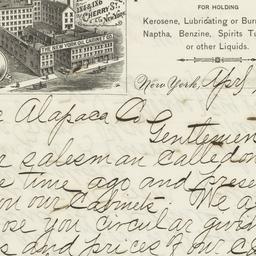 114 & 116
CHERRY ST.
New York.
THE NEW YORK OIL CABINET CO.
FOR HOLDING
Kerosene, Lubricating or Burn
Naptha, Benzine, Spirits Tu
or other Liquids.
New York, Apr
e Alapaca Co
Gentlemen
r salesman called on
s time ago and prese
on our Cabinets. We a
ose you circular givin
s and prices of our Ca